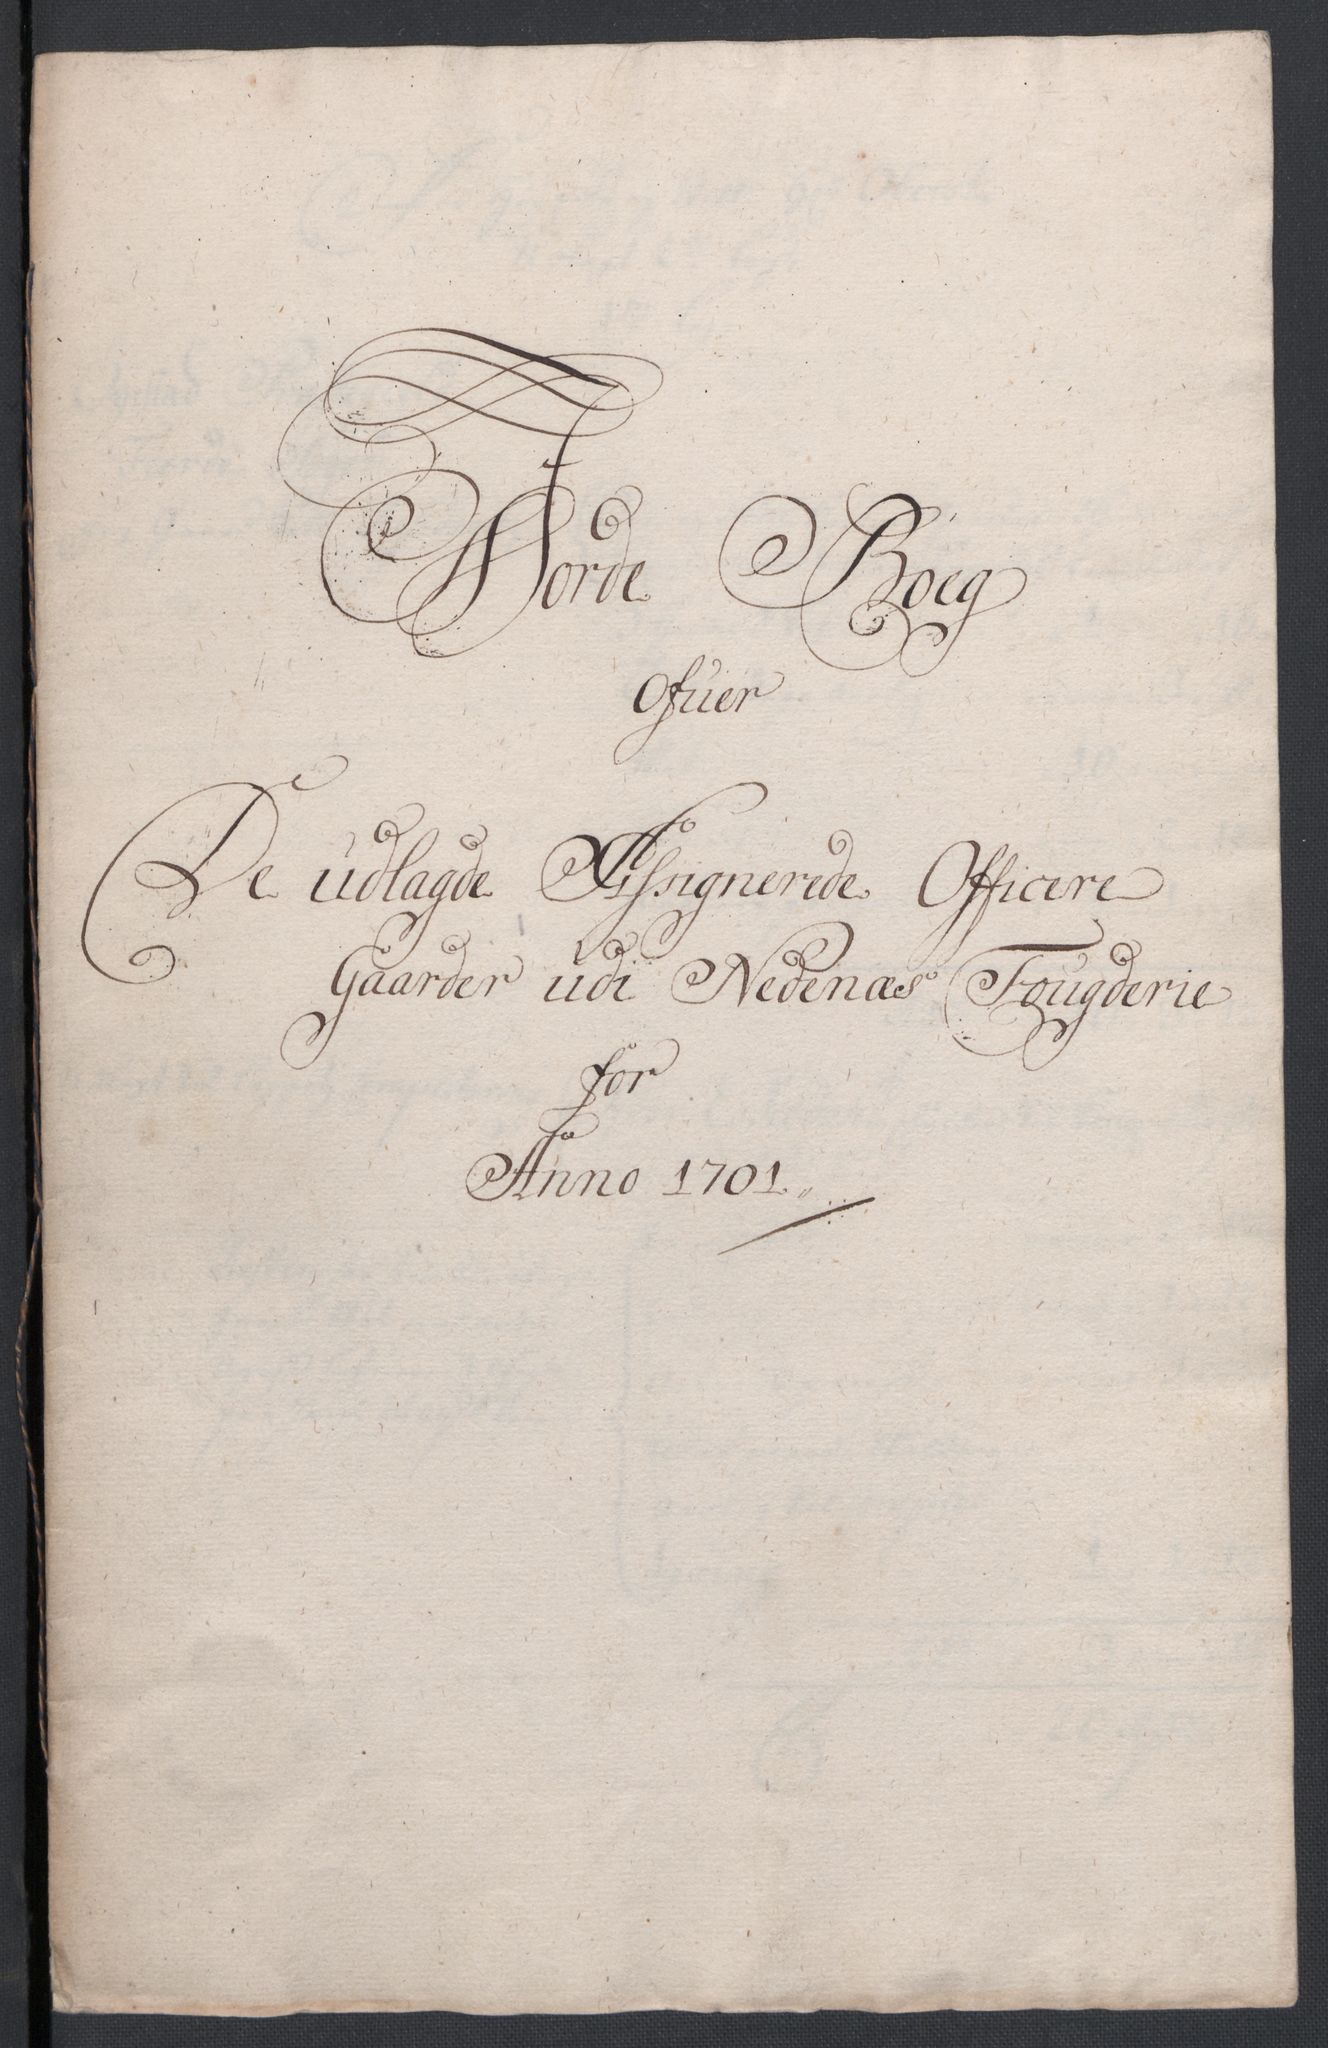 Jorde Boeg
Ofuer
De udlagde Assignerede Officere
Gaarder udi Nedenæs Fougderie
for
Anno 1701